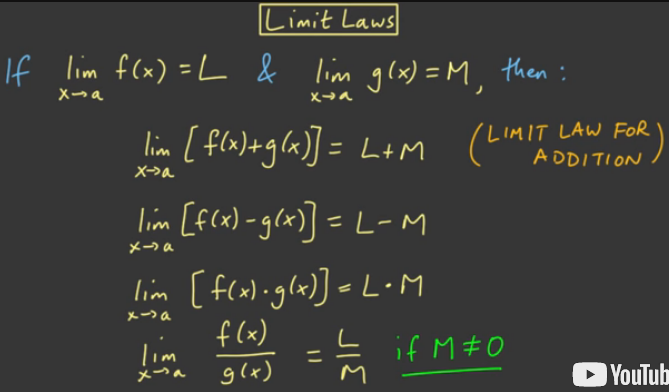 Limit Laws
If lim x→a f(x) = L & lim x→a g(x) = M, then :
lim x→a [f(x)+g(x)] = L+M (LIMIT LAW FOR ADDITION)
lim x→a [f(x)-g(x)] = L-M
lim x→a [f(x)·g(x)] = L·M
lim x→a f(x)/g(x) = L/M if M≠0
YouTub